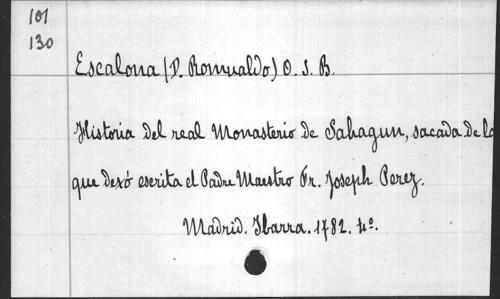 101
130
Escalona (D. Romualdo) O. S. B.
Historia del real Monasterio de Sahagun, sacada de la
que dexó escrita el Padre Maestro Fr. Joseph Perez.
Madrid. Ibarra. 1782. 4º.